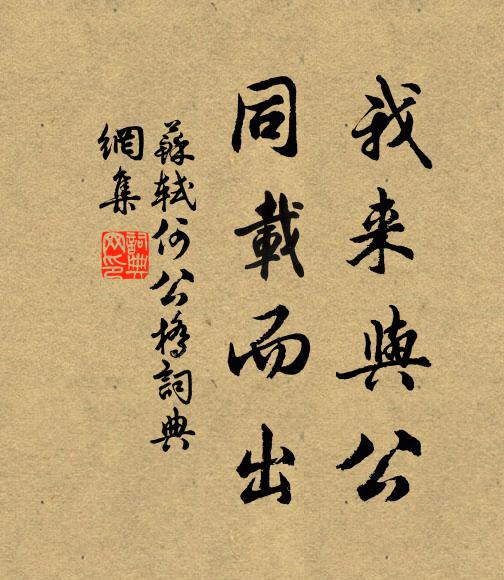 我来與公
同載而出
蘇軾何公橋詞典
網集
詞典
网印